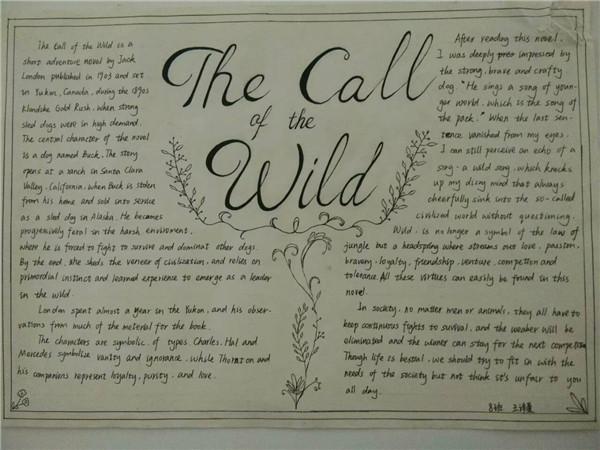 The Call
of the
Wild
The Call of the Wild is a
short adventure novel by Jack
London published in 1903 and set
in Yukon, Canada, during the 1890s
Klondike Gold Rush, when strong
sled dogs were in high demand.
The central character of the novel
is a dog named Buck. The story
opens at a ranch in Santa Clara
Valley, California, when Buck is stolen
from his home and sold into service
as a sled dog in Alaska. He becomes
progressively feral in the harsh enviroment,
where he is forced to fight to survive and dominat other dogs.
By the end, she sheds the veneer of civilization, and relies on
primordial instinct and learned experience to emerge as a leader
in the wild.
London spent almost a year in the Yukon, and his obser-
vations from much of the meterial for the book.
The characters are symbolic of types. Charles, Hal and
Mercedes symbolize vanity and ignorance, while Thornton and
his companions represent loyalty, purity, and love.
After reading this novel,
I was deeply impressed by
the strong, brave and crafty
dog. "He sings a song of youn-
ger world, which is the song of
the pack." When the last sen-
tence vanished from my eyes,
I can still perceive an echo of a
song - a wild song, which knocks
up my dicing mind that always
cheerfully sink into the so-called
civilized world without questioning.
Wild, is no longer a symbol of the law of
jungle but a headspring where streams out love, passion,
bravery, loyalty, friendship, venture, competion and
tolerance. All these virtues can easily be found in this
novel.
In society, no matter men or animals, they all have to
keep continuous fights to survival, and the weaker will be
eliminated and the winner can stay for the next competition.
Though life is bestial, we should try to fit in with the
needs of the society but not think it's unfair to you
all day.
8班 王